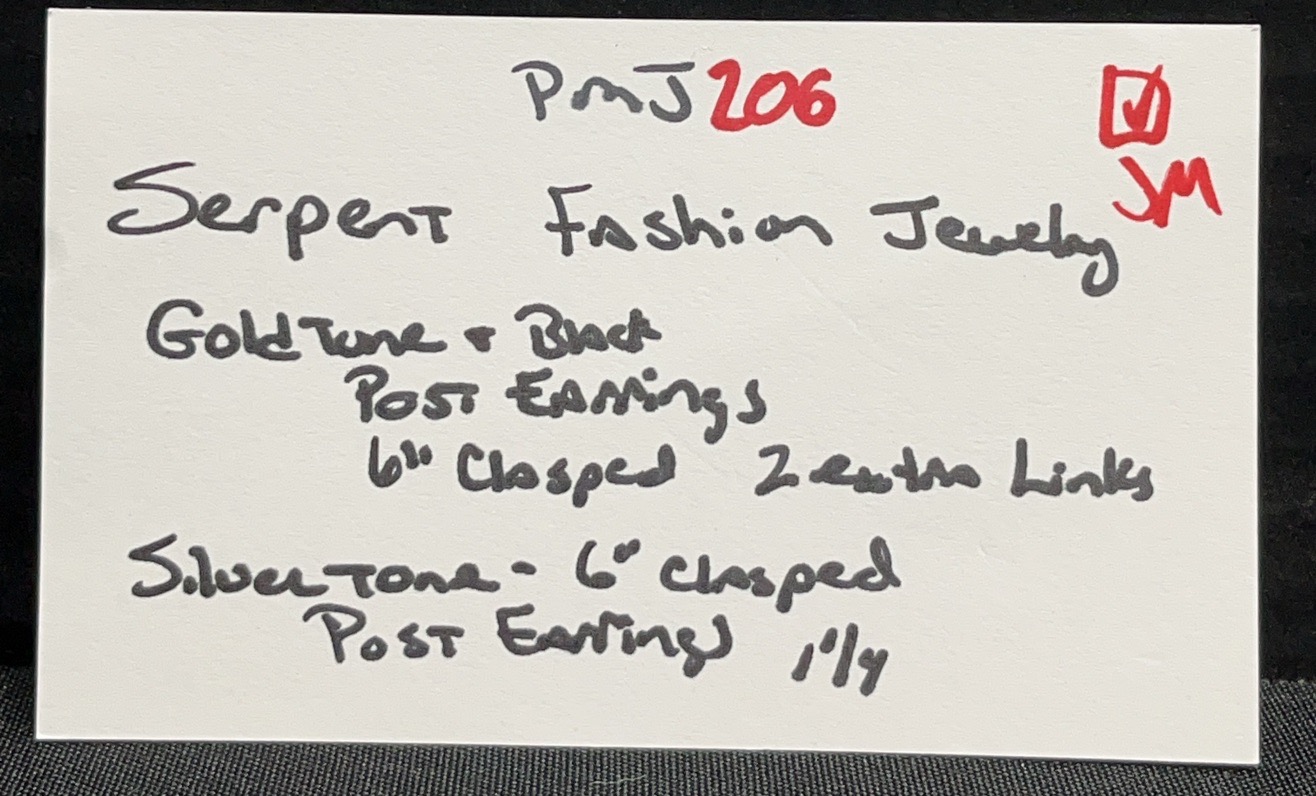 PMJ206
☑
JM
Serpent Fashion Jewelry
Gold Tone + Black
Post Earrings
6" Clasped 2 extra Links
Silver Tone - 6" clasped
Post Earrings 1 1/4